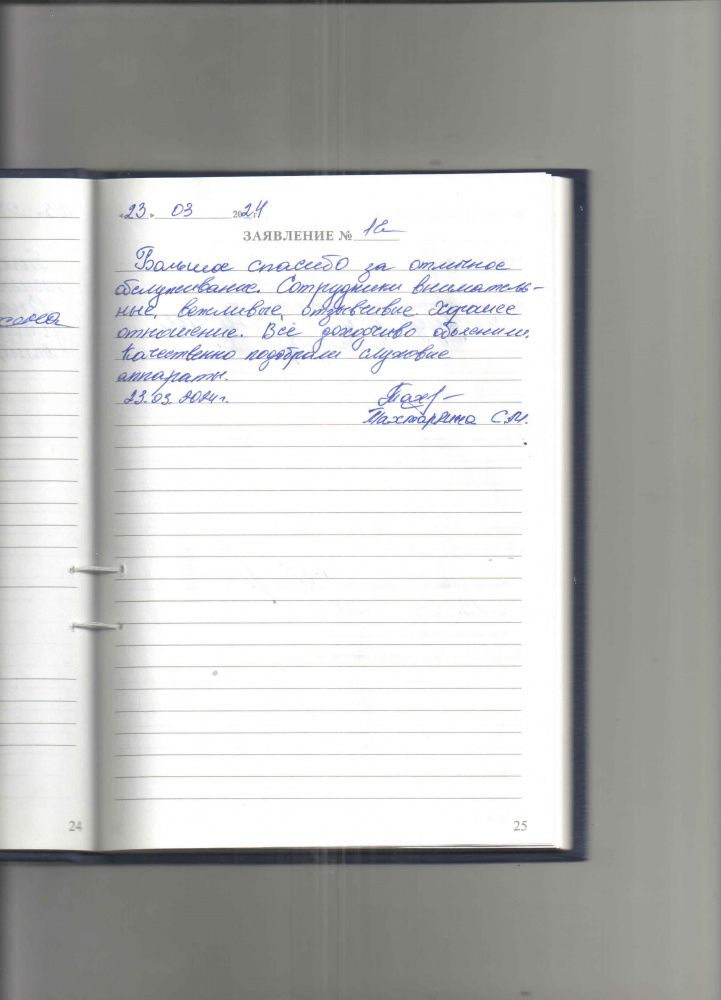 «23» 03 2024 г.
ЗАЯВЛЕНИЕ №
Большое спасибо за отличное
обслуживание. Сотрудники вниматель-
ные, вежливые, отзывчивые. Хорошее
отношение. Всё доходчиво объяснили.
Качественно подобрали слуховые
аппараты.
23.03.2024 г.
С.М.
24
25